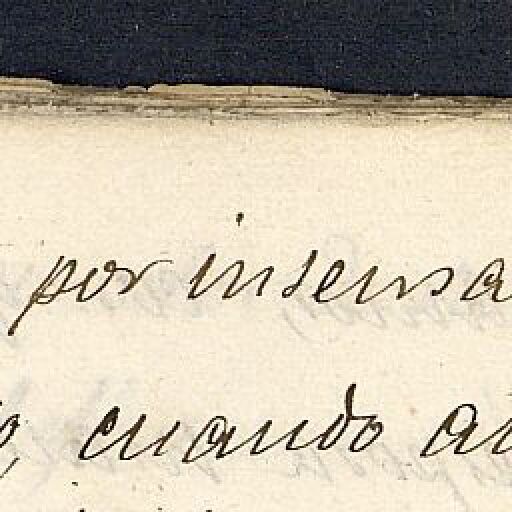 por insensa
o, cuando